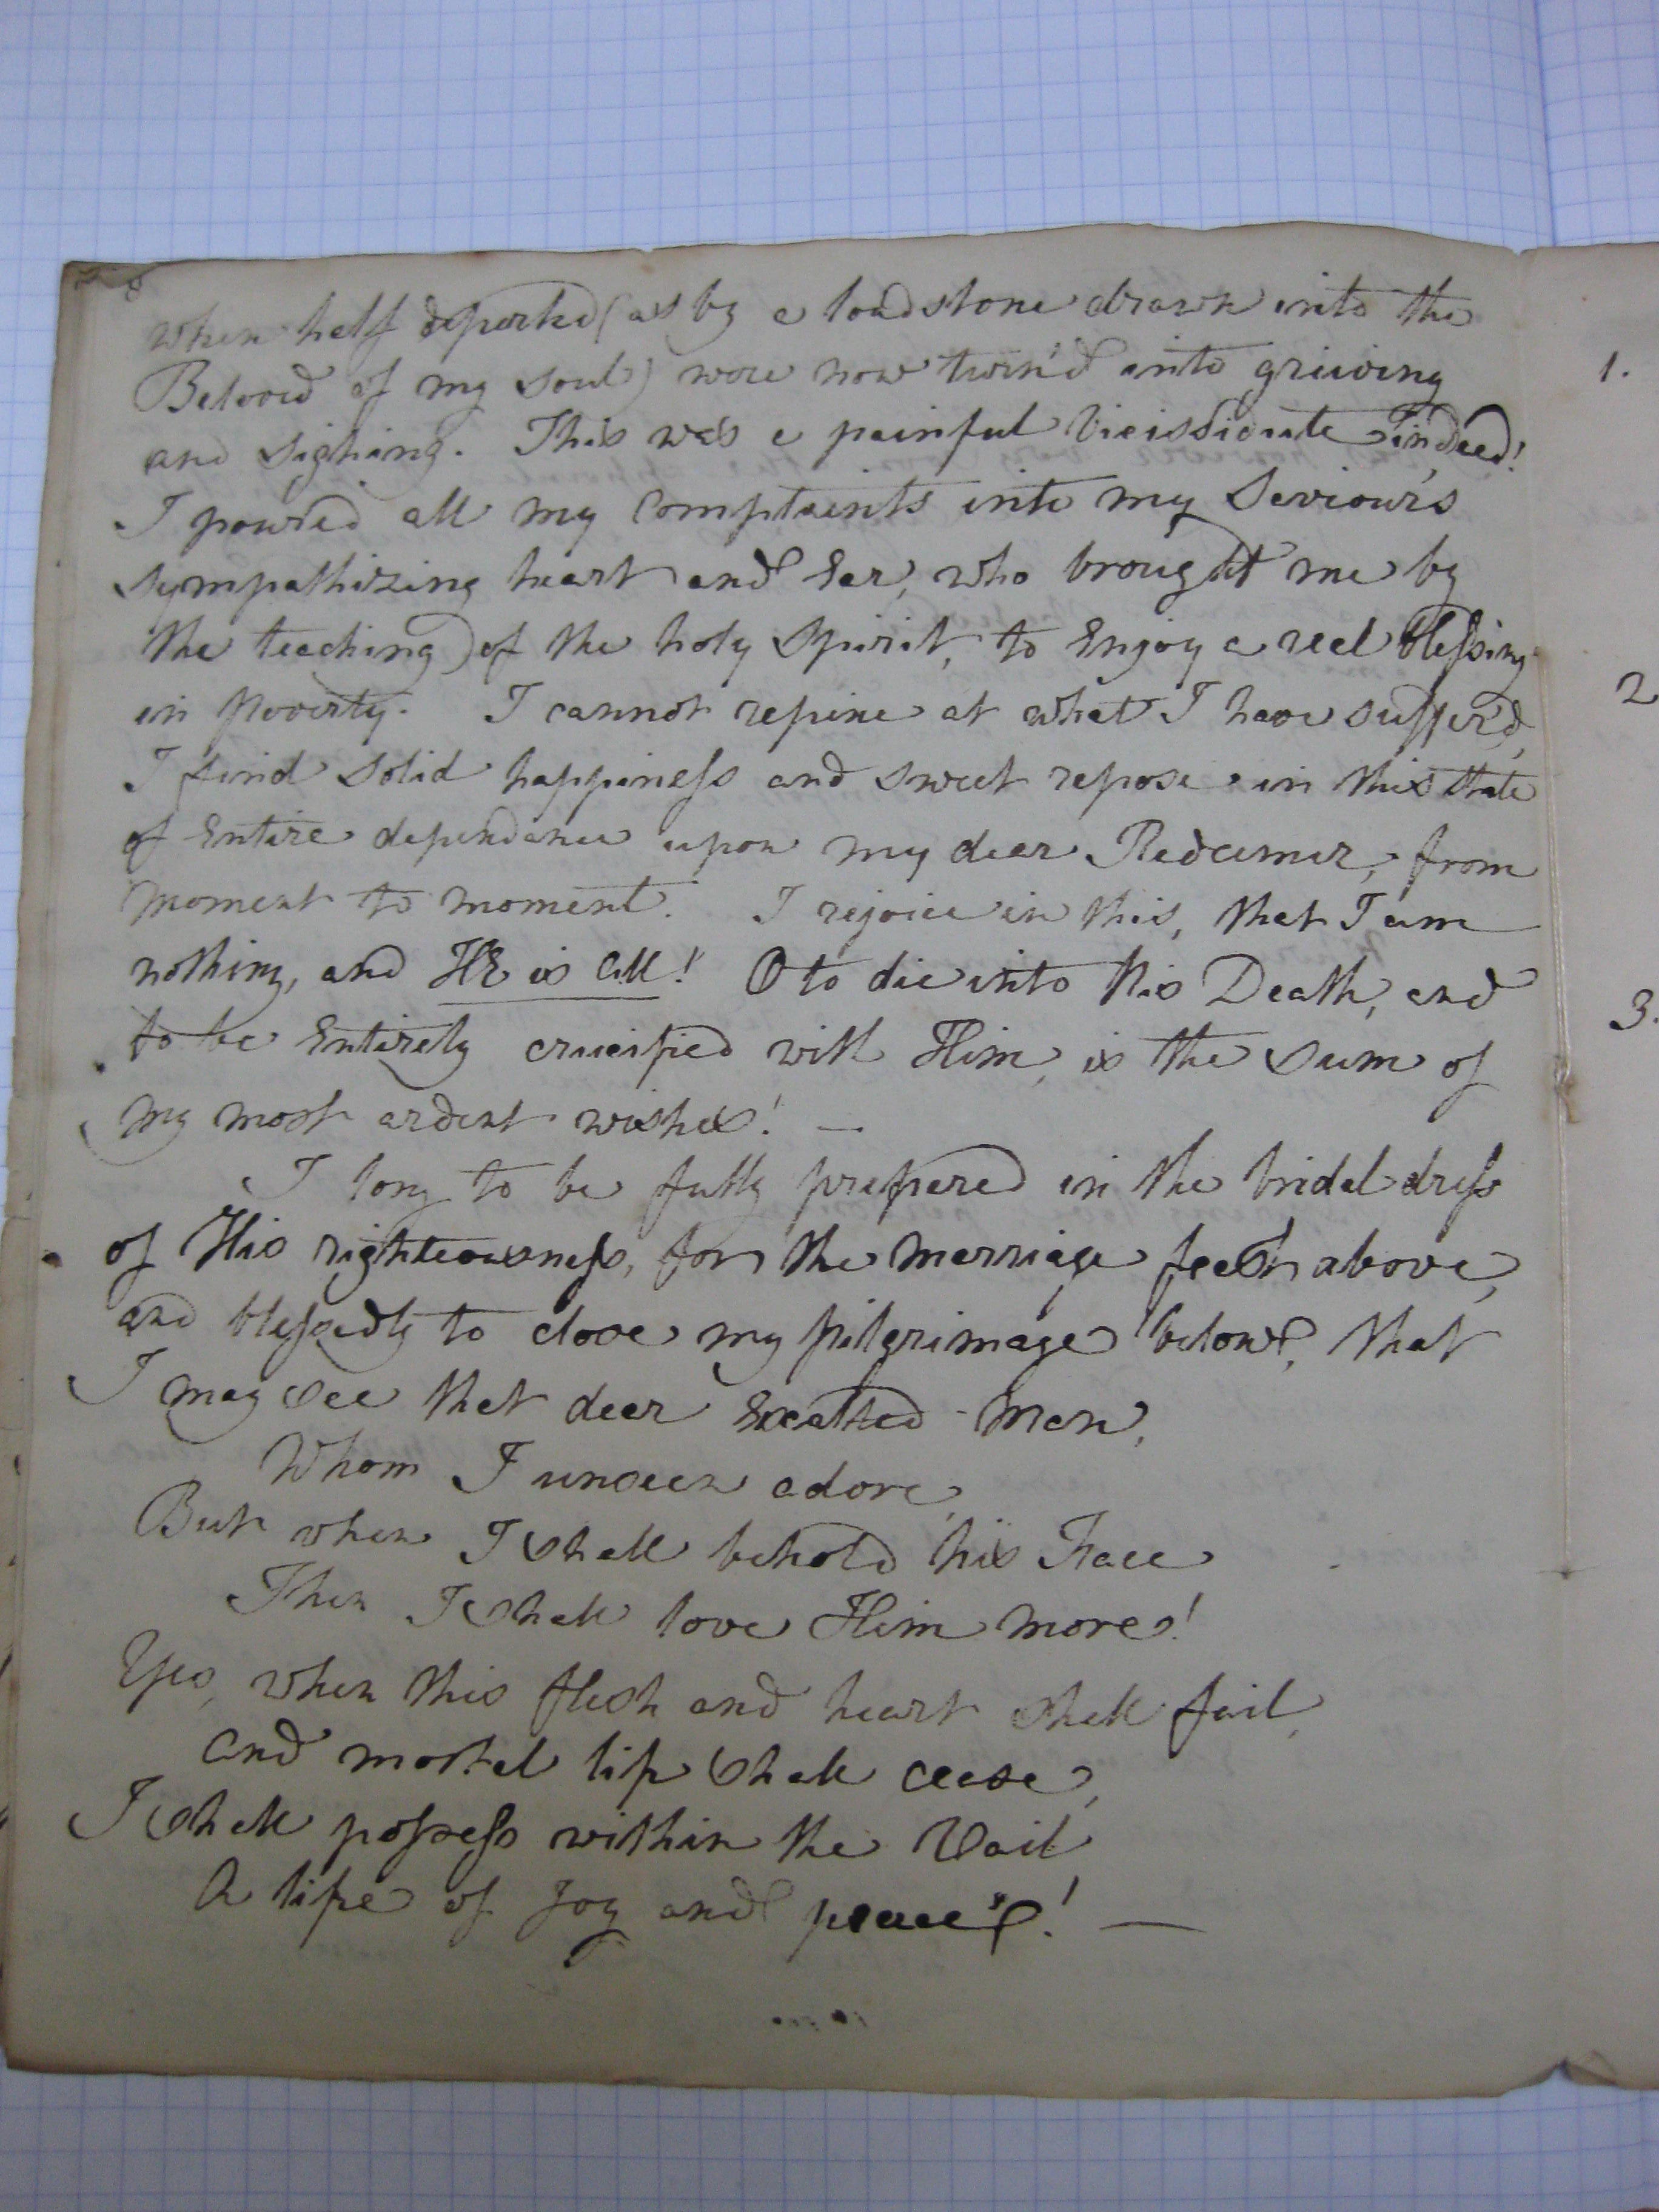 8
when half departed (as by a loadstone drawn into the
Beloved of my soul) were now turn'd into grieving
and sighing. This was a painful Vicissitude indeed!
I poured all my Complaints into my Saviour's
sympathizing heart and Ear, who brought me by
the teaching of the holy Spirit, to Enjoy a real blessing
in Poverty. I cannot repine at what I have suffer'd,
I find solid happiness and sweet repose in this State
of Entire dependance upon my dear Redeemer, from
moment to moment. I rejoice in this, that I am
nothing, and HE is All! O to die into His Death, and
to be Entirely crucified with Him, is the Sum of
my most ardent wishes! —
I long to be fully prepared in the bridal dress
of His righteousness, for the marriage feast above,
and blessedly to close my pilgrimage below, that
I may see that dear Exalted Man,
Whom I unseen adore,
But when I shall behold his Face
Then I shall love Him more!
Yes, when this flesh and heart shall fail,
and mortal life shall cease,
I shall possess within the Vail
A life of Joy and peace! —
1.
2
3.